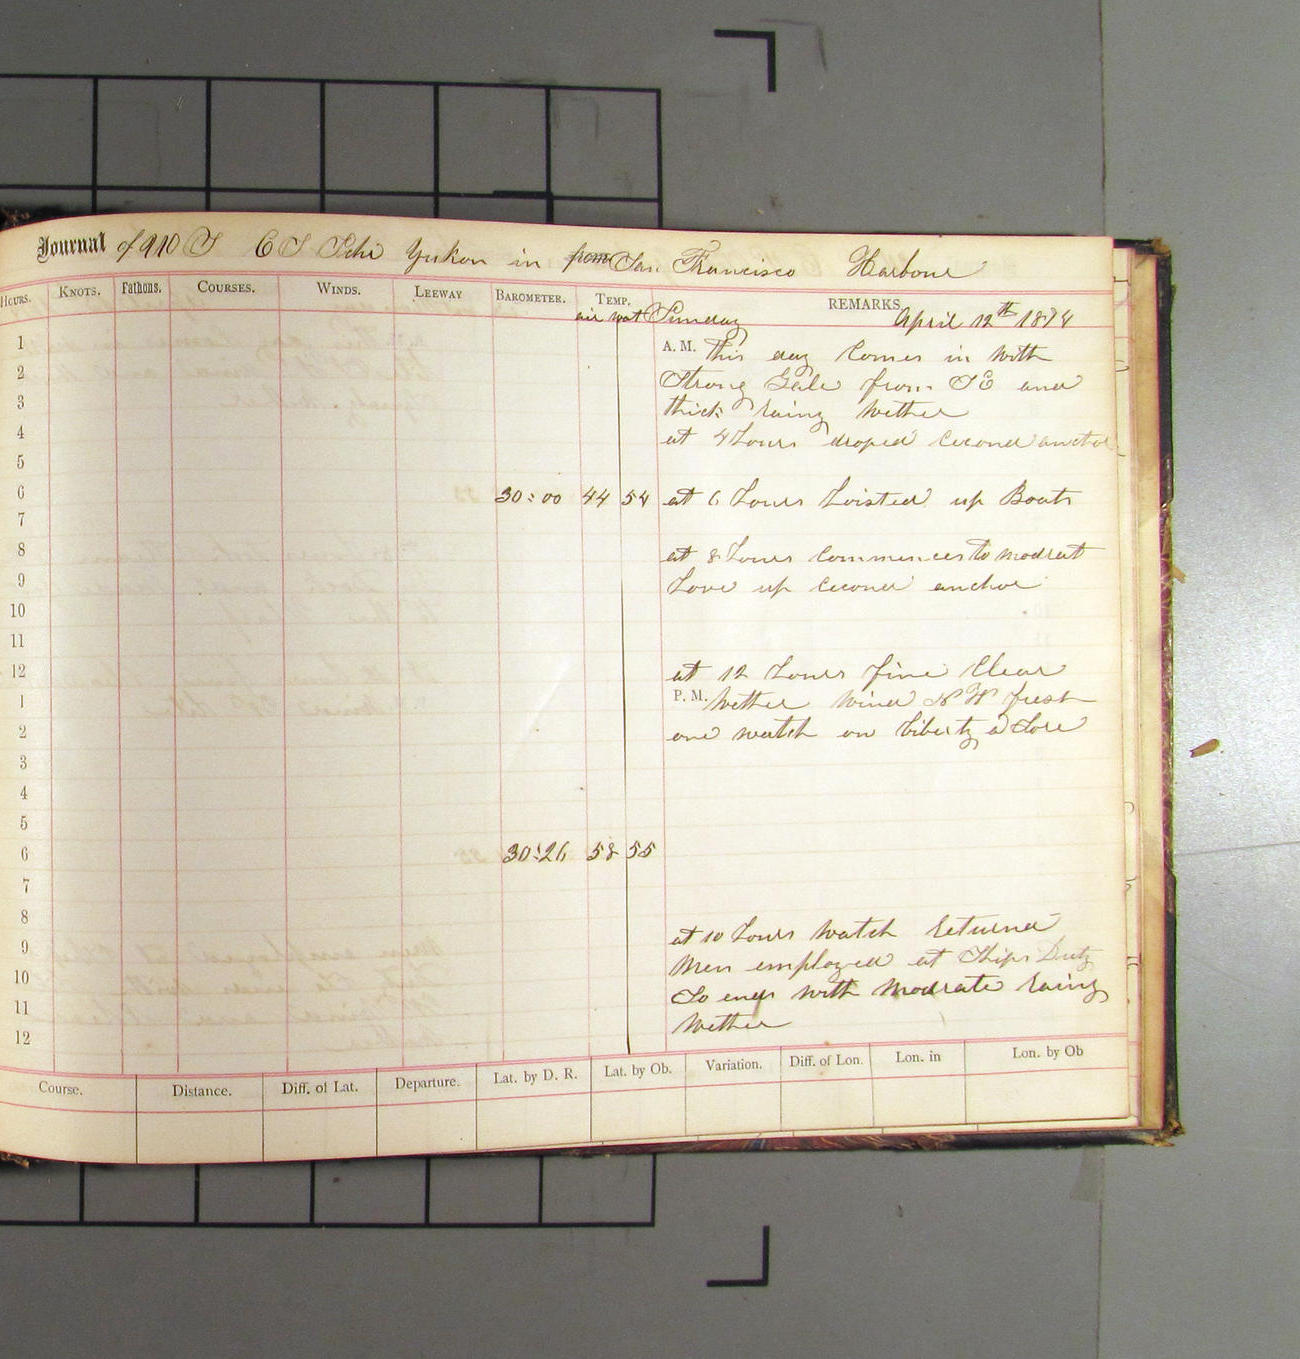 Journal of U S C S Schr Yukon in from San Francisco Harbour
HOURS. KNOTS. Fathoms. COURSES. WINDS. LEEWAY BAROMETER. TEMP. REMARKS.
air wat Sunday April 12th 1874
1 A. M. this day Comes in with
2 Strong Gale from SE and
3 thick rainy wether
4 at 4 hours droped second anchor
5
6 30:00 44 54 at 6 hours hoisted up Boats
7
8 at 8 hours Commences to modrat
9 hove up second anchor
10
11
12 at 12 hours fine Clear
1 P. M. wether wind NW fresh
2 one watch on liberty a Shore
3
4
5
6 30:26 58 55
7
8 at 10 hours watch returned
9 Men employed at Ships Duty
10 So ends with modrate rainy
11 wether
12
Course. Distance. Diff. of Lat. Departure. Lat. by D. R. Lat. by Ob. Variation. Diff. of Lon. Lon. in Lon. by Ob